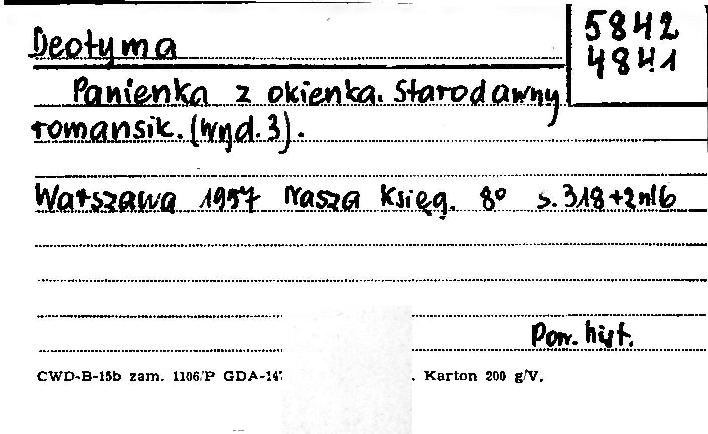 5842
4841
Deotyma
Panienka z okienka. Starodawny
romansik. (Wyd. 3).
Warszawa 1957 Nasza Księg. 8° s. 318+2nlb
Pow. hist.
CWD-B-15b zam. 1106/P GDA-147 . Karton 200 g/V.